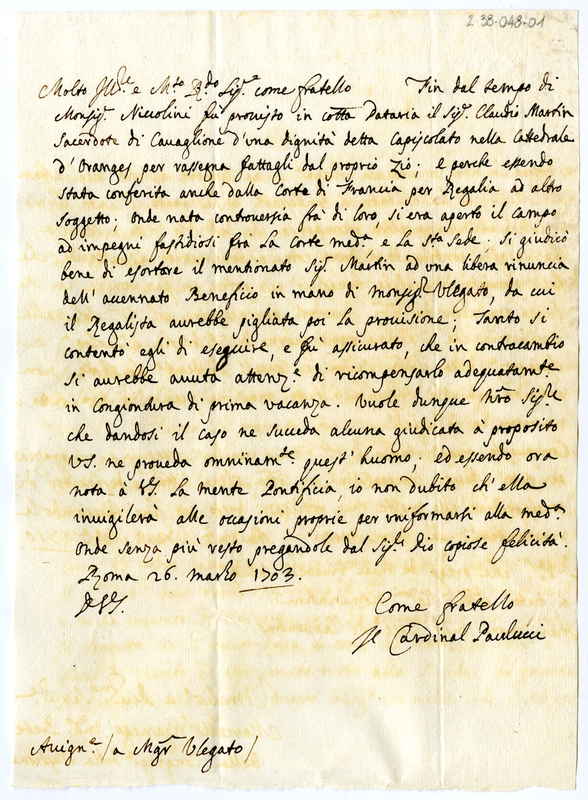 2-38-048-01
Molto Ill.re e M.to R.do Sig.re come fratello Fin dal tempo di
Monsig.r Niccolini fù prouisto in cotta Dataria il Sig.r Claudio Martin
Sacerdote di Cauaglione d'una dignità detta Capiscolato nella Cattedrale
d'Oranges per rassegna fattagli dal proprio Zio; e perche essendo
stata conferita anche dalla Corte di Francia per Regalia ad altro
soggetto; onde nata controuersia frà di loro, si era aperto il campo
ad impegni fastidiosi frà La Corte med.a e La S.ta Sede. Si giudicò
bene di esortare il mentionato Sig.r Martin ad una libera rinuncia
dell'accennato Beneficio in mano di monsig.r Vlegato, da cui
il Regalista aurebbe pigliata poi La prouisione; Tanto si
contentò egli di eseguire, e fù assicurato, che in contracambio
si aurebbe auuta attenz.e di ricompensarlo adeguatam.te
in Congiondura di prima vacanza. Vuole dunque N.ro Sig.re
che dandosi il caso ne succeda alcuna giudicata à proposito
VS. ne proueda omninam.te quest'huomo; ed essendo ora
nota à VS. La mente Pontificia, io non dubito ch'ella
inuigilerà alle occasioni proprie per uniformarsi alla med.a
Onde senza più resto pregandole dal Sig.r Dio copiose felicità.
Roma 26. marzo 1703.
Come fratello
Cardinal Paulucci
Auign.e / a Mg.r Vlegato /